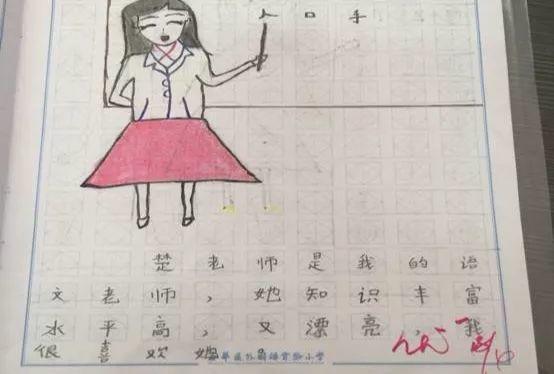 人口手
楚老师是我的语
文老师，她知识丰富
水平高，又漂亮，我
很喜欢她。